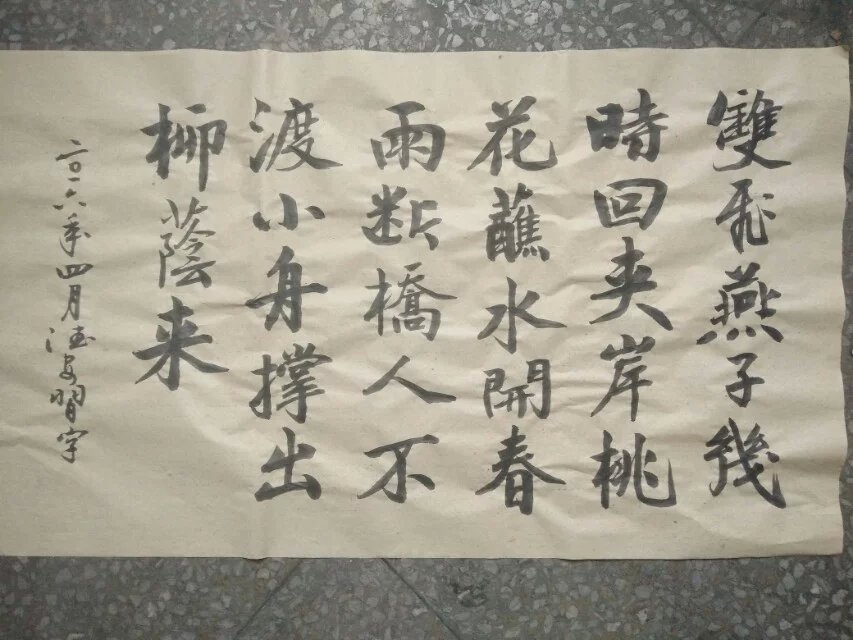 雙飛燕子幾
時回夾岸桃
花蘸水開春
雨断橋人不
渡小舟撑出
柳蔭来
二〇一六年四月 習字